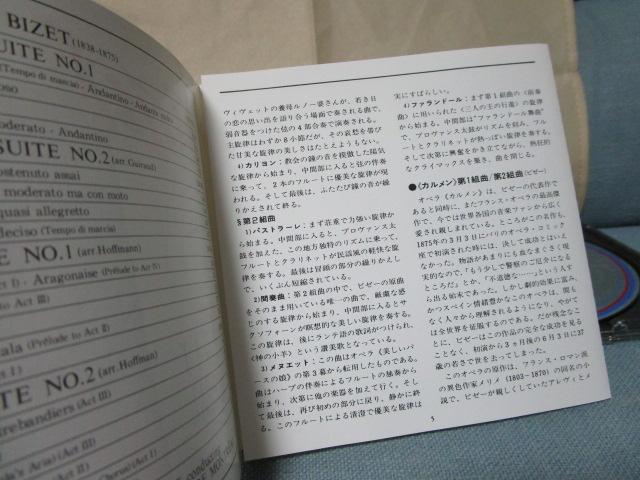 BIZET (1838-1875)
SUITE NO.1
(Tempo di marcia) - Andantino - Andantino
Andantino
SUITE NO.2 (arr.Guiraud)
sostenuto assai
moderato ma con moto
quasi allegretto
deciso (Tempo di marcia)
NO.1 (arr.Hoffmann)
Aragonaise (Prélude to Act IV)
Act III)
(Prélude to Act II)
Act I)
NO.2 (arr.Hoffman)
(Act III)
Aria) (Act III)
(Act II)
Chorus) (Act I)
conducting
DE MONT
ヴィヴェットの養母ルノー婆さんが、若き日
の恋の思い出を語り合う場面で奏される曲で、
弱音器をつけた弦の4部合奏で演奏される。
主旋律はわずか8小節だが、その哀愁を帯び
た甘美な旋律の美しさはたとえようもない。
4)カリヨン:教会の鐘の音を模倣した陽気
な旋律から始まり、中間部に入ると弦の伴奏
に乗って、2本のフルートに優美な旋律が現
われる。そして最後は、ふたたび鐘の音が繰
りかえされて終る。
§第2組曲
1)パストラーレ:まず荘重で力強い旋律か
ら始まる。中間部に入ると、プロヴァンス太
鼓を加えた、この地方独特のリズムに乗って、
フルートとクラリネットが民謡風の軽快な旋
律を奏する。最後は冒頭の部分の繰りかえし
で、いくぶん短縮されている。
2)間奏曲:第2組曲の中で、ビゼーの原曲
をそのまま用いている唯一の曲で、厳粛な感
じのする旋律から始まり、中間部に入るとサ
クソフォーンが瞑想的な美しい旋律を奏する。
この旋律は、後にラテン語の歌詞がつけられ、
《神の小羊》という讃美歌となっている。
3)メヌエット:この曲はオペラ《美しいパ
ースの娘》の第3幕から転用したものである。
曲はハープの伴奏によるフルートの独奏から
始まり、次第に他の楽器を加えて行く。そし
て最後は、再び初めの部分に戻り、静かに終
る。このフルートによる清澄で優美な旋律は
実にすばらしい。
4)ファランドール:まず第1組曲の《前奏
曲》に用いられた〈三人の王の行進〉の旋律
から始まり、中間部は“ファランドール舞曲”
で、プロヴァンス太鼓がリズムを刻み、フル
ートとクラリネットが熱っぽい旋律を奏する。
そして次第に興奮をかき立てながら、熱狂的
なクライマックスを築き、曲を閉じる。
●〈カルメン〉第1組曲/第2組曲(ビゼー)
オペラ《カルメン》は、ビゼーの代表作で
あると同時に、またフランス・オペラの最高傑
作で、今では世界各国の音楽ファンから広く
愛され親しまれている。ところがこの名作も、
1875年の3月3日にパリのオペラ・コミック
座で初演された時には、決して成功とはいえ
なかった。物語があまりにも血なまぐさく現
実的なので、「もう少しで警察のご厄介になる
ところだ」とか、「不道徳な……」という人す
ら出る始末であった。しかし劇的効果に富み、
かつスペイン情緒豊かなこのオペラは、間も
なく人々から理解されるようになり、やがて
は全世界を征服するのである。だが残念なこ
とに、ビゼーはこの作品の完全な成功を見る
ことなく、初演から3ヵ月後の6月3日に37
歳の若さで世を去ってしまった。
このオペラの原作は、フランス・ロマン派
の異色作家メリメ(1803〜1870)の同名の小
説で、ビゼーが親しくしていたアレヴィとメ
5